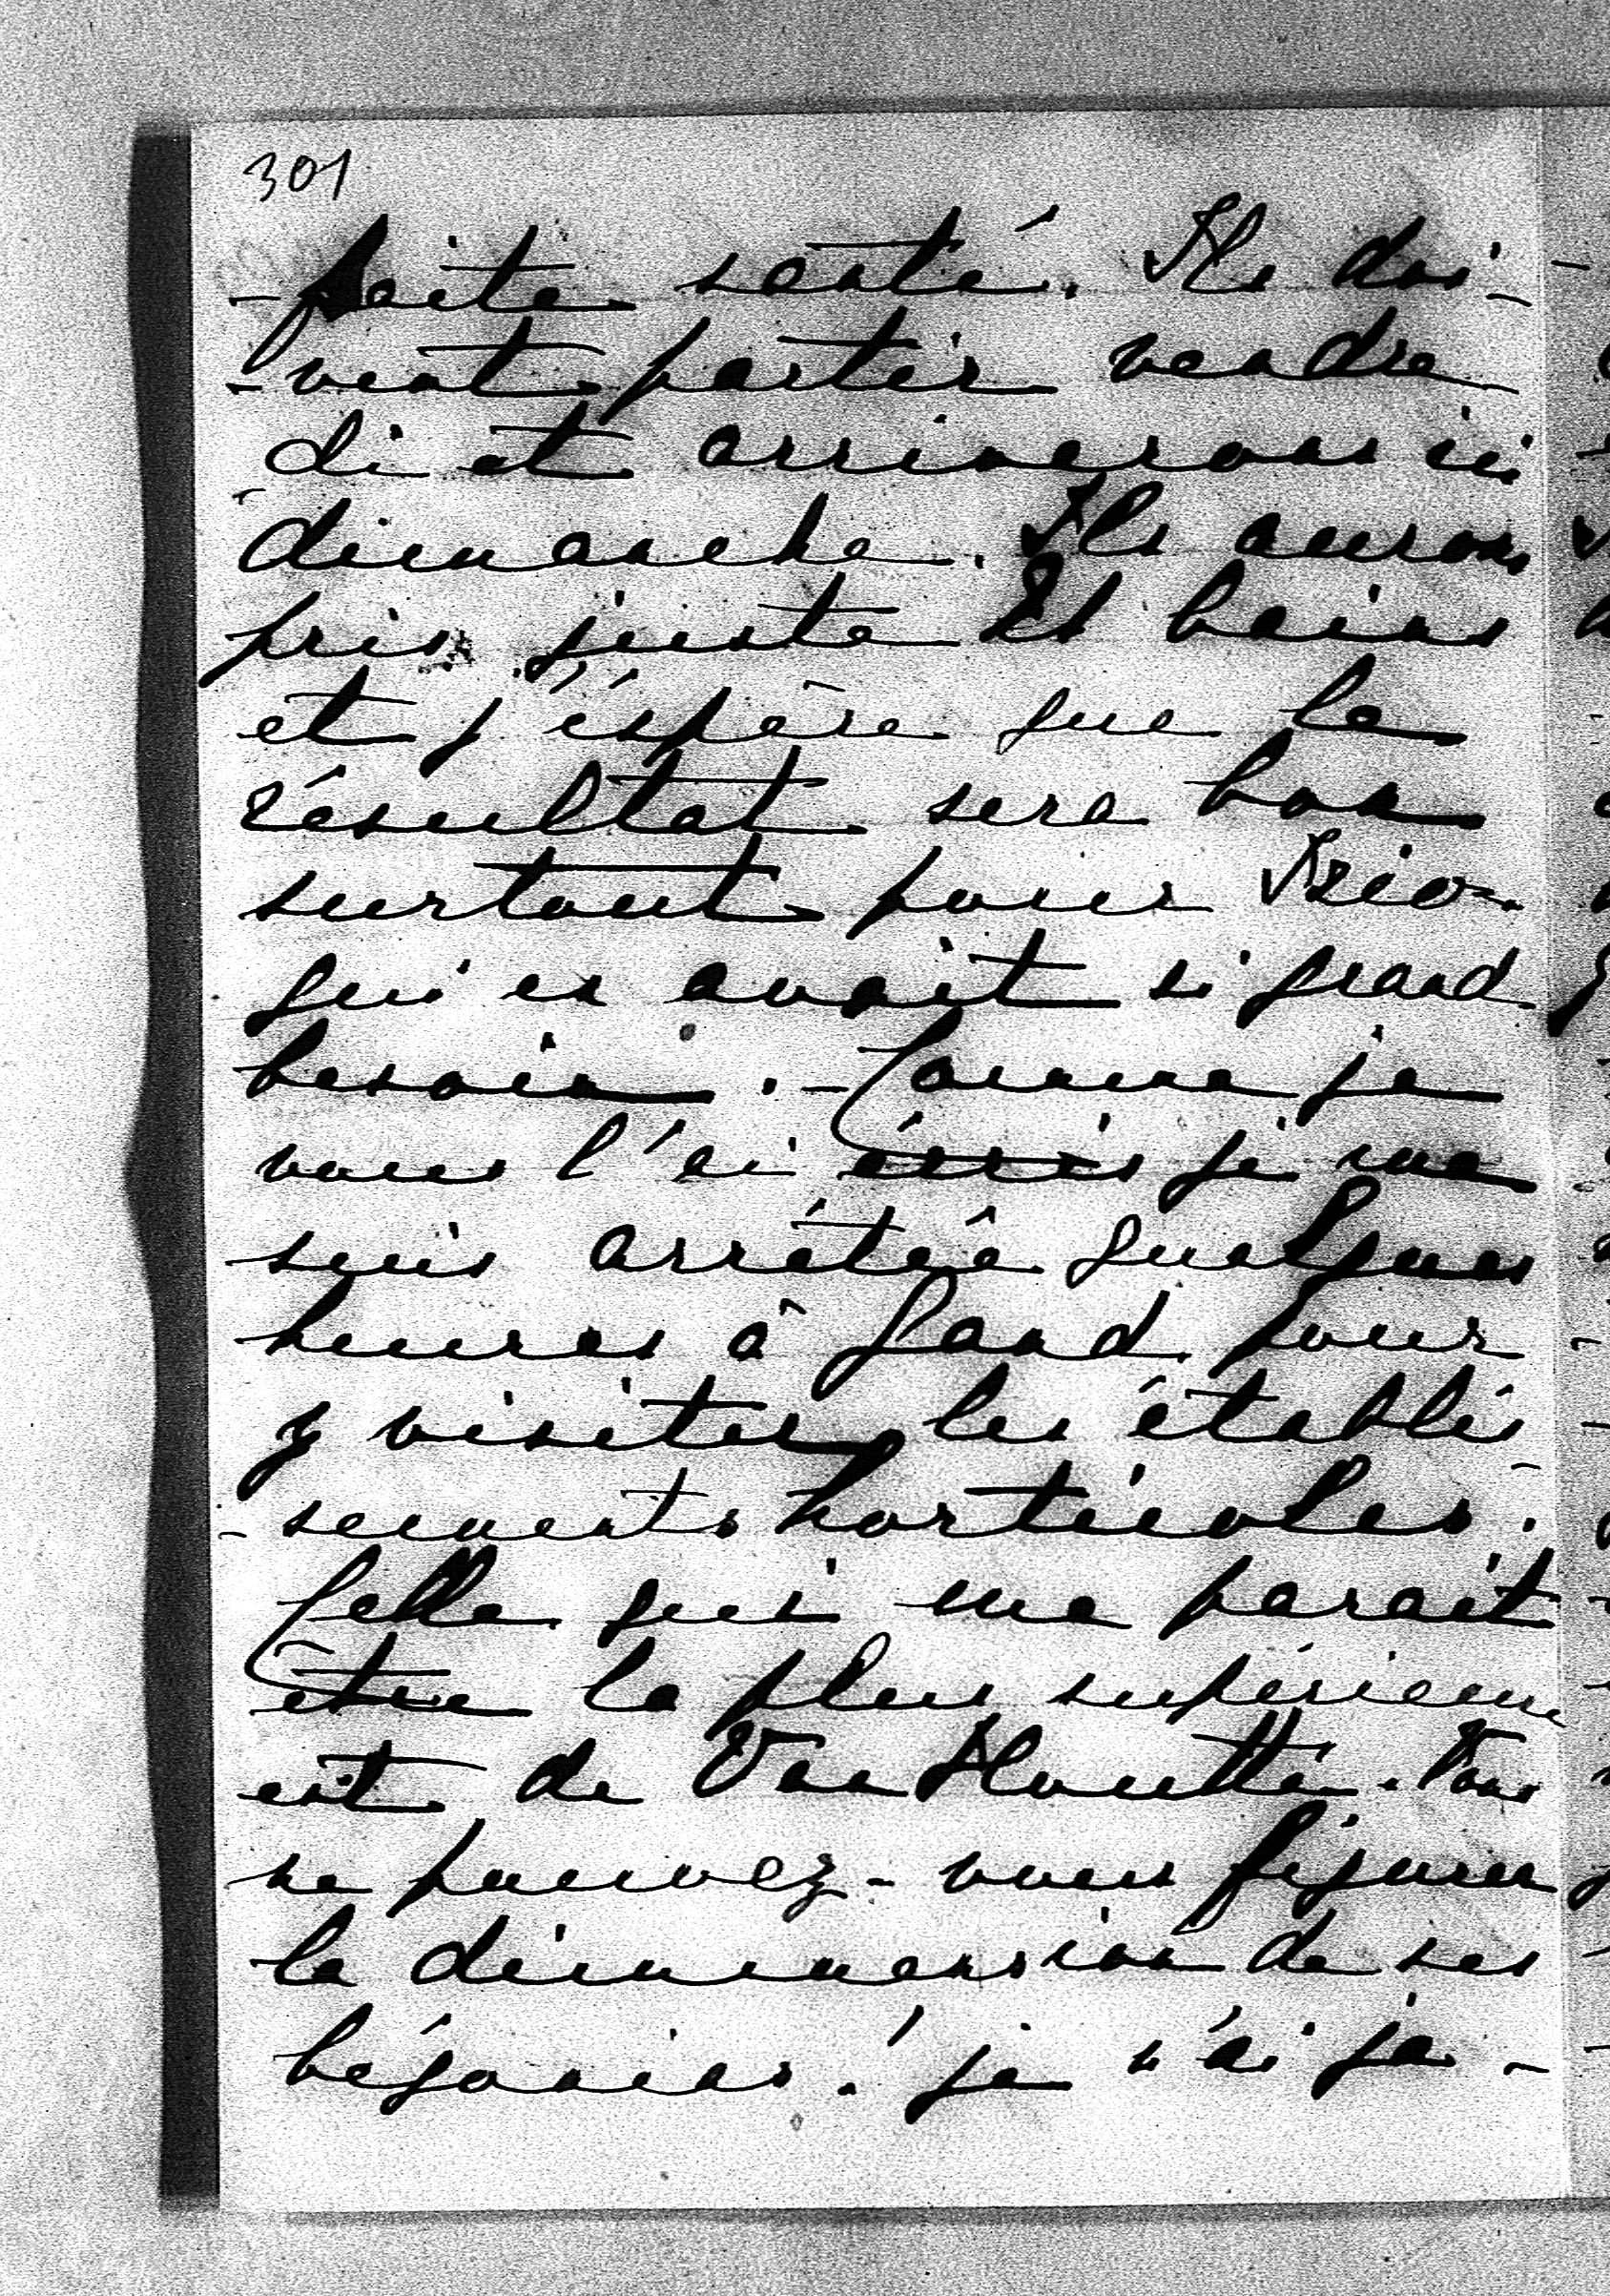 301
-faite santé. Ils doi-
-vent partir vendre
di et arriverons ici
dimanche. Ils aurons
pris juste 21 bains
et j'éspère que le
résultat sera bon
surtout pour
qui en avait si grand
besoin. - Comme je
vous l'ai écris je me
suis arrêtée quelques
heures à Gand pour
y visiter les établis-
-sements horticoles.
Celle qui me parait
être la plus supérieure
est de Van Houtte. Vous
ne pouvez-vous figurer
la dimmension de ses
bégonias. je n'ai ja-